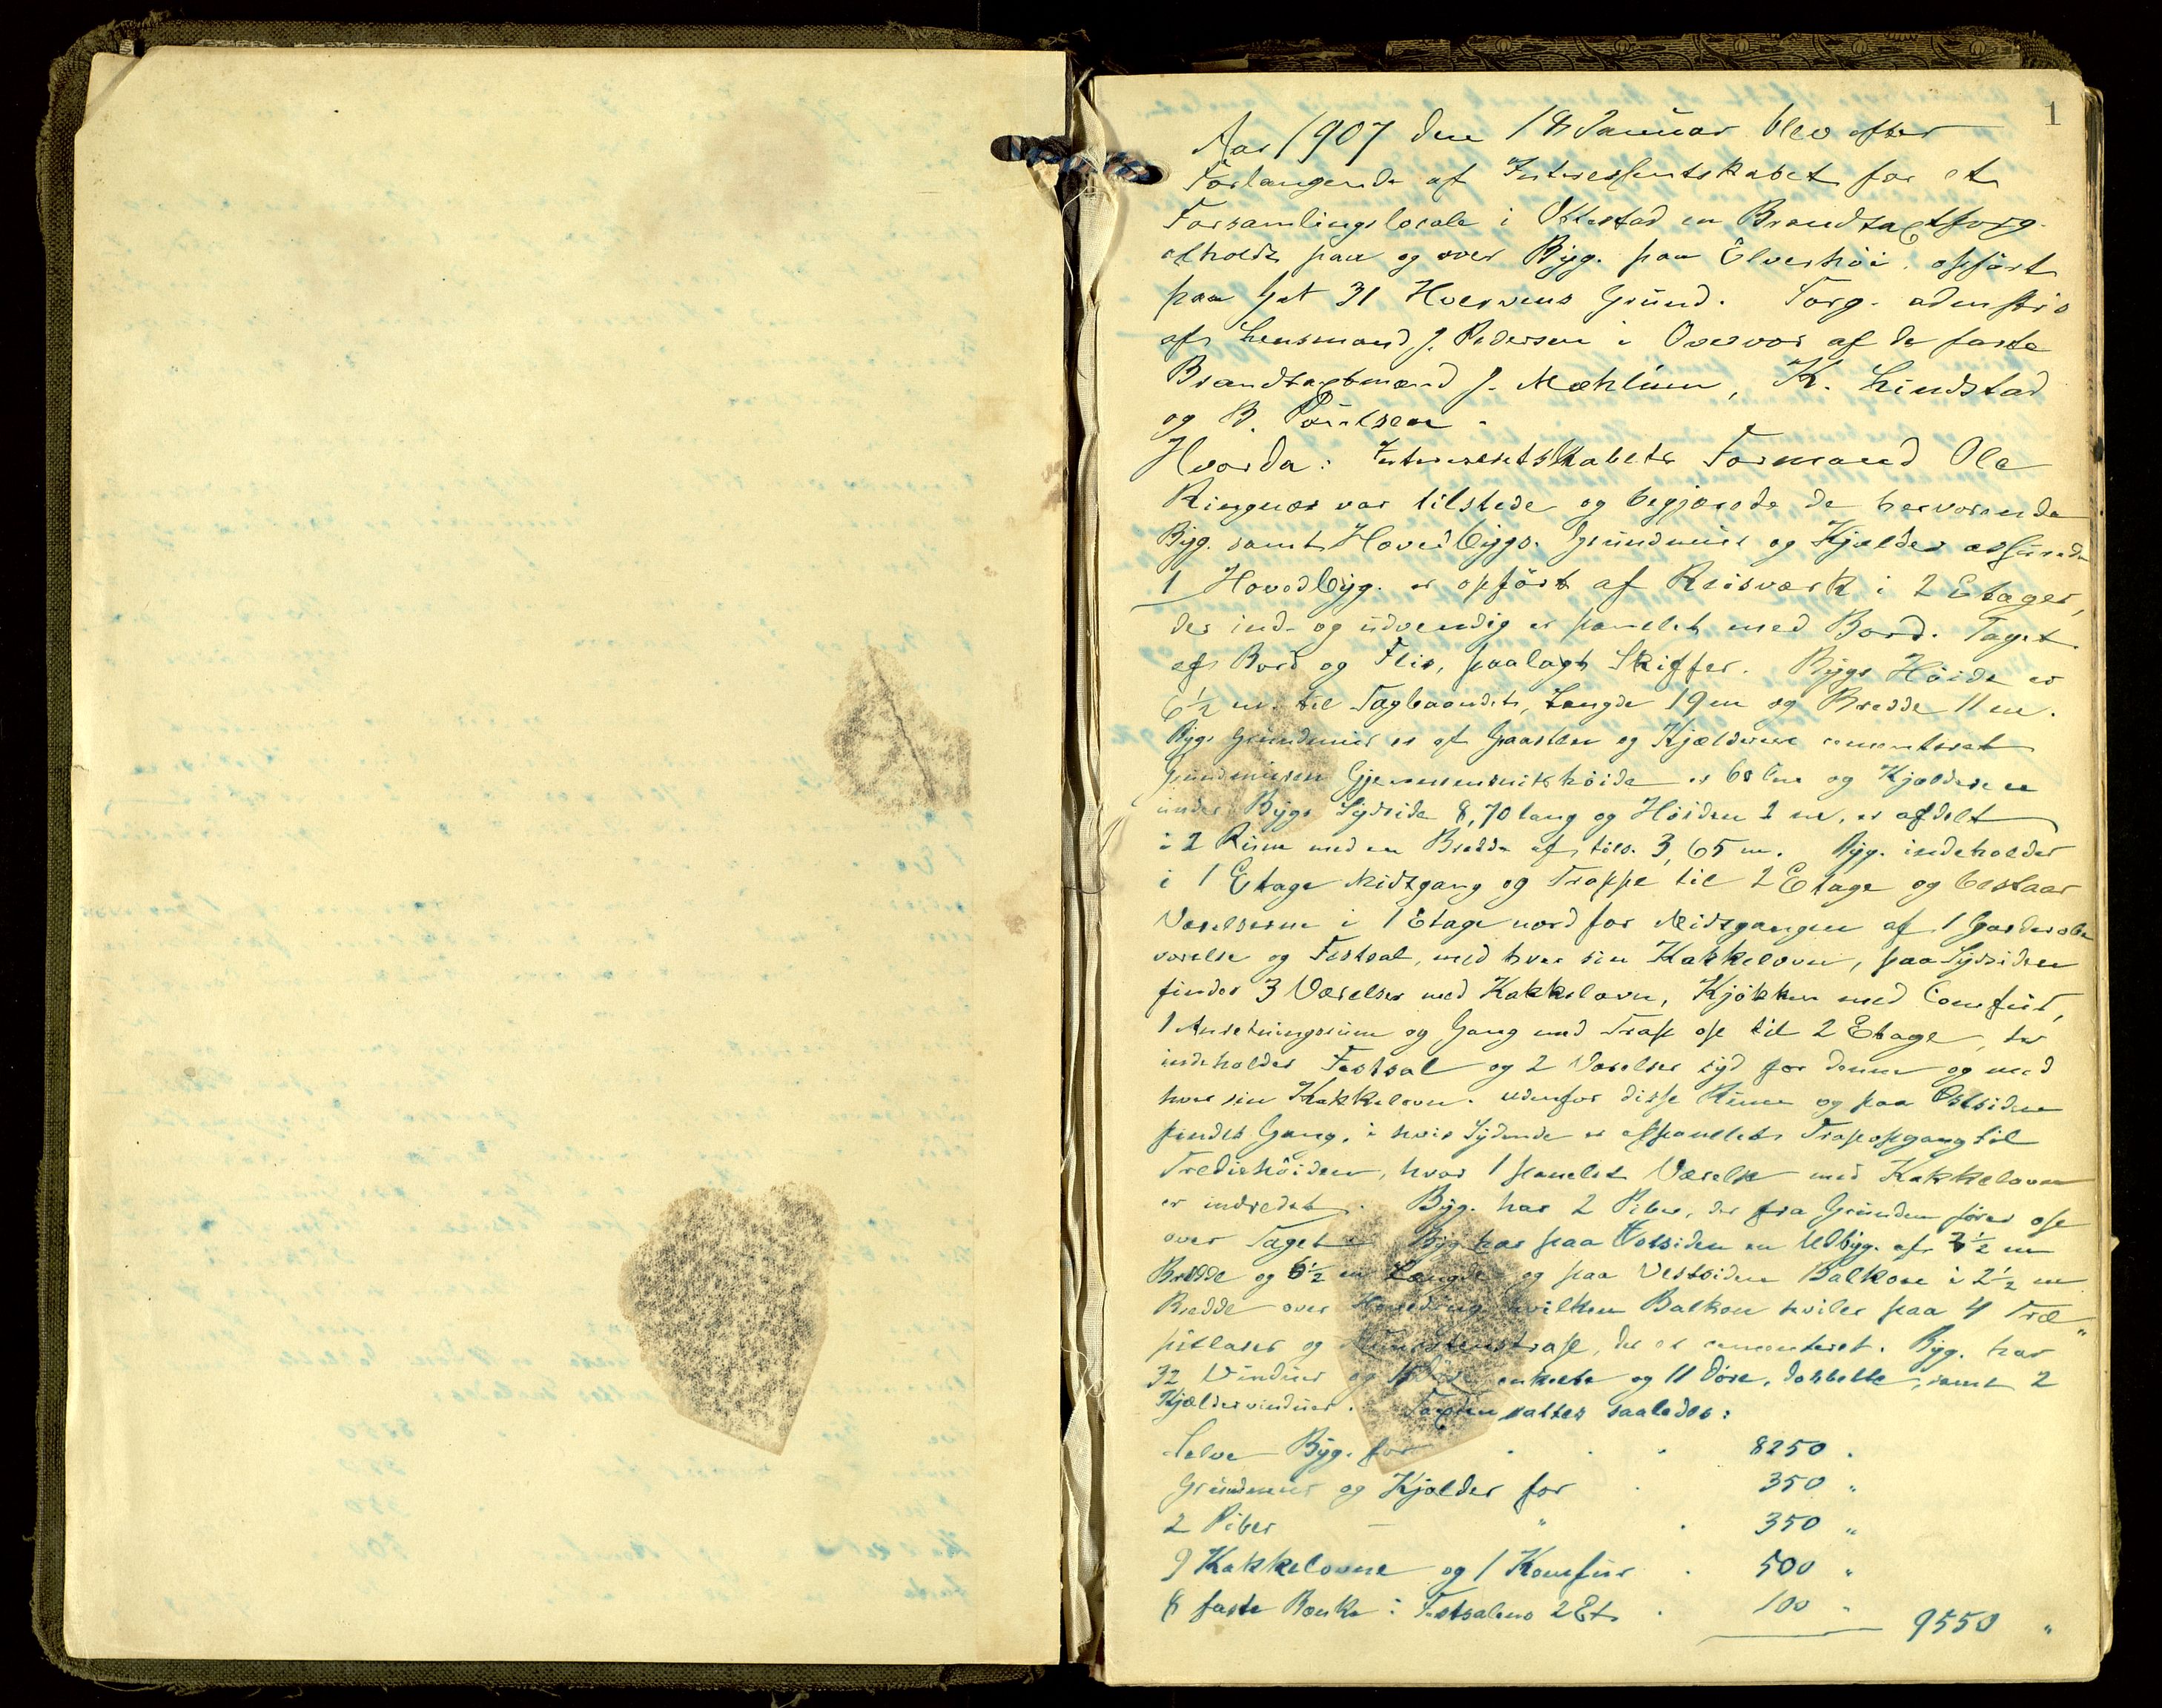 1
Aar 1907 den 18 Januar blev efter
Forlangende af Interessentskabet for et
Forsamlingslocale i Ottestad en Brandtaxtforr.
afholdt paa og over Byg. paa Elverhøi, opført
paa Gnt 31 Hvervens Grund. Forr. admstr.
af Lensmand J. Pedersen i Overvær af de faste
Brandtaxtmænd J. Mæhlum, K. Lindstad
og B. Poulsen.
Hvorda: Interessentskabets Formand Ole
Ringnæs var tilstede og begjærede de herværende
Byg. samt Hovedbygs. Grundmur og Kjælder
1 Hovedbyg. er opført af Reisværk i 2 Etager,
der ind- og udvendig er panelet med Bord. Taget
af Bord og Flis, paalagt Skiffer. Bygs Høide er
6 1/2 m. til Tagbaandet, Længde 19 m og Bredde 11 m.
Bygs Grundmur er af Graasten og Kjælderne cementeret
Grundmuren Gjennemsnitshøide er og Kjælderen
under Bygs Sydside 8,70 lang og Høiden 2 m, er afdelt
i 2 Rum med en Bredde af tils. 3,65 m. Byg. indeholder
i 1 Etage Midtgang og Trappe til 2 Etage og bestaar
Værelserne i 1 Etage nord for Midtgangen af 1 Garderobe
værelse og Festsal, med hver sin Kakkelovn, paa Sydsiden
findes 3 Værelser med Kakkelovn, Kjøkken med Comfur,
1 Anretningsrum og Gang med Trap op til 2 Etage, der
indeholder Festsal og 2 Værelser syd for denne og med
hver sin Kakkelovn. Udenfor disse Rum og paa Østsiden
findes Gang, i hvis Sydende er oppanelet Trapopgang til
Trediehøiden, hvor 1 panelet Værelse med Kakkelovn
er indredet. Byg. har 2 Piber, der fra Grunden fører op
over Taget. Byg har paa en Udbyg. af 3 1/2 m
Bredde og 6 1/2 m Længde og paa Vestsiden Balkon i 2 1/2 m
Bredde over hvilken Balkon hviler paa 4 Træ„
pillarer og Murstenstrap, der er cementeret. Byg. har
32 Vinduer og enkelte og 11 Døre, dobbelte, samt 2
Kjældervinduer. Taxten sattes saaledes:
Selve Byg. for 8250 .
Grundmur og Kjælder for 350 „
2 Piber — „ 350 „
9 Kakkelovne og 1 Komfur 500 „
8 faste Bænke i Festsalens 2 Et. 100 „ 9550 „